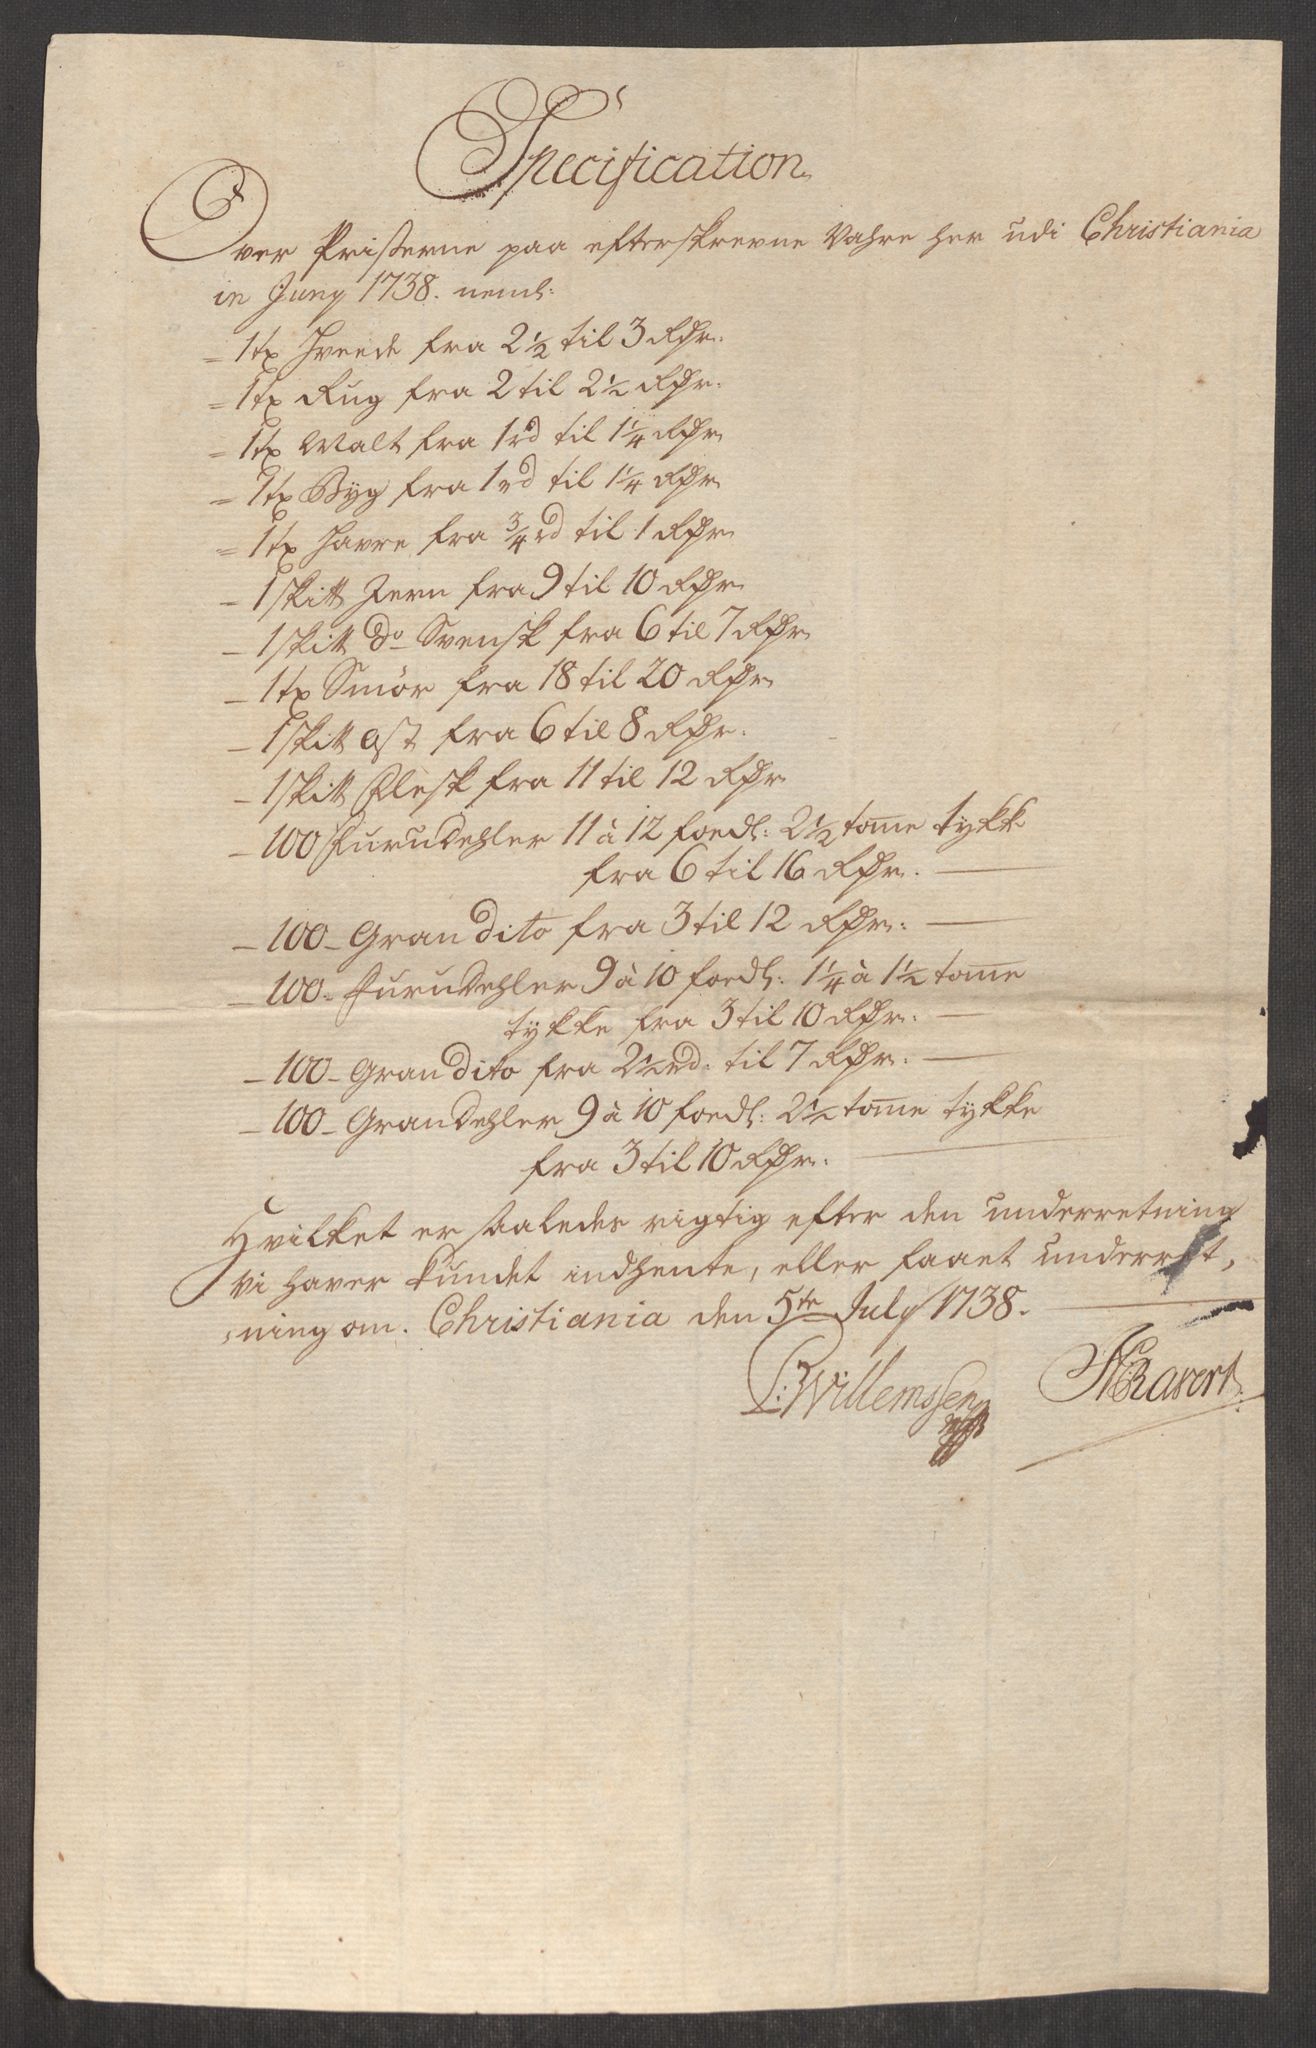 Specification
Over Prisserne paa efterskrevne Vahre her udi Christiania
in Juny 1738. neml:
= 1 tr Hvede fra 2½ til 3 Rdr.
= 1 tr Rug fra 2 til 2½ Rdr.
= 1 tr Malt fra 1 rd til 1¼ Rdr
= 1 tr Byg fra 1 rd til 1¼ Rdr
= 1 tr Havre fra ¾ rd til 1 Rdr
– 1 skitt Jern fra 9 til 10 Rdr
– 1 skitt do Svensk fra 6 til 7 Rdr
– 1 tr Smör fra 18 til 20 Rdr
– 1 skitt Ost fra 6 til 8 Rdr.
– 1 skitt Flesk fra 11 til 12 Rdr
– 100 Furudehler 11 à 12 foedl: 2½ tome tykk
fra 6 til 16 Rdr. —
– 100 – Gran dito fra 3 til 12 Rdr. —
– 100 – Furudehler 9 à 10 foedl: 1¼ à 1½ tome
tykke fra 3 til 10 Rdr. —
– 100 – Gran dito fra 2½ rd: til 7 Rdr. —
– 100 – Grandehler 9 à 10 foedl: 2½ tome tykke
fra 3 til 10 Rdr. —
Hvilket er saaledes rigtig efter den underretning
vi haver kundet indhente, eller faaet underret,
,ning om. Christiania den 5te July 1738.
L: Willemssen NRavert